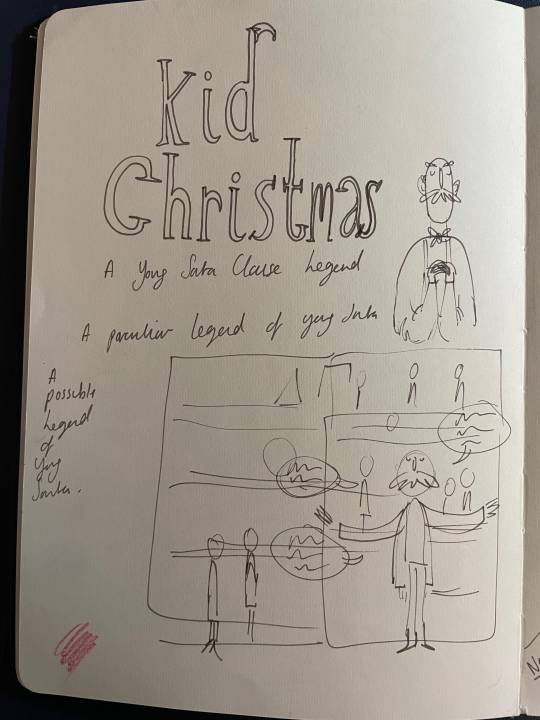 Kid
Christmas
A Yong Sata Clause Legend
A peculiar legend of yong Santa
A
possible
Legend
of
Yong
Santa.